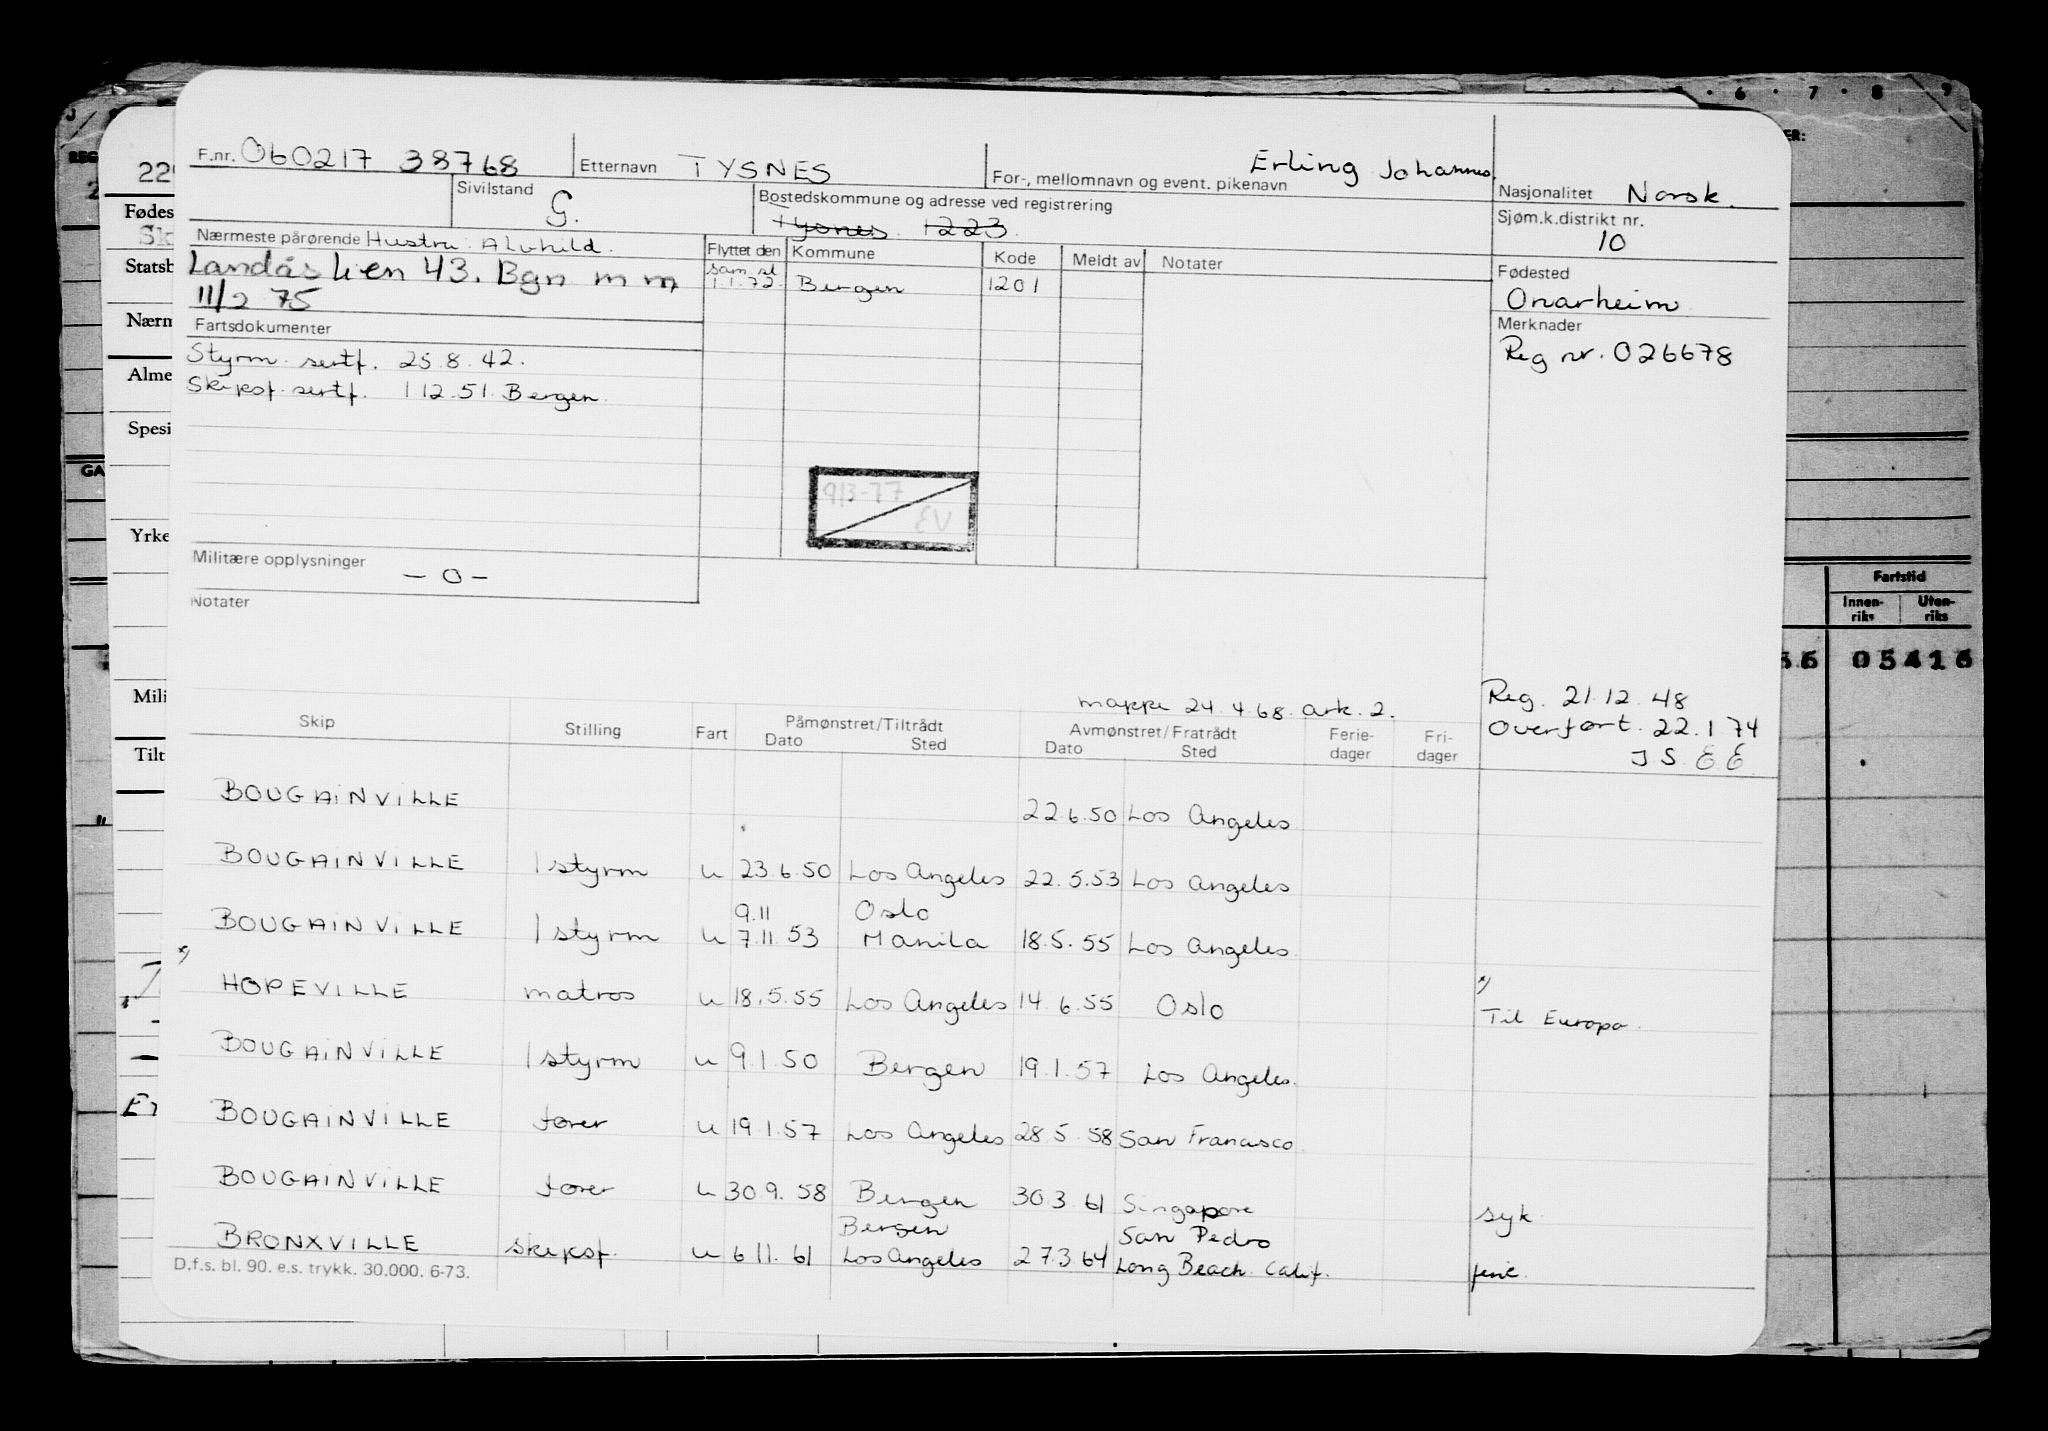 F.nr. 060217 38768 Etternavn TYSNES For-, mellomnavn og event. pikenavn Erling Johannes. Nasjonalitet Norsk.
Sivilstand G. Bostedskommune og adresse ved registrering Tysnes 1223. Sjøm.k.distrikt nr. 10
Nærmeste pårørende Hustru: Alvhild. Flyttet den Kommune Kode Meldt av Notater Fødested
Landåslien 43. Bgn m m sam.st 1.1.72. Bergen 1201 Onarheim
11/2 75
Fartsdokumenter Merknader
Styrm. sertf. 25.8.42. Reg nr. 026678
Skipsf. sertf. 1 12.51. Bergen.
9/3-77
EV
Militære opplysninger – 0 –
Notater
mappe 24.4.68. ark. 2. Reg. 21.12.48
Overført. 22.1.74
J.S. E E
Skip Stilling Fart Påmønstret/Tiltrådt Avmønstret/Fratrådt Ferie- Fri-
Dato Sted Dato Sted dager dager
BOUGAINVILLE 22.6.50 Los Angeles
BOUGAINVILLE 1 styrm u 23.6.50 Los Angeles 22.5.53 Los Angeles
9.11 Oslo
BOUGAINVILLE 1 styrm u 7.11.53 Manila 18.5.55 Los Angeles
x) HOPEVILLE matros u 18.5.55 Los Angeles 14.6.55 Oslo x) Til Europa.
BOUGAINVILLE 1 styrm u 9.1.50 Bergen 19.1.57 Los Angeles.
BOUGAINVILLE fører u 19.1.57 Los Angeles 28.5.58 San Francisco
BOUGAINVILLE fører u 30.9.58 Bergen 30.3.61 Singapore syk
Bergen San Pedro
BRONXVILLE skipsf. u 6.11.61 Los Angeles 27.3.64 Long Beach. Calif. ferie.
D.f.s. bl. 90. e.s. trykk. 30.000. 6-73.
REG
22
Fødes
Sk
Statsb
Nærm
Alme
Spesi
GA
Yrke
Mili
Tilt
6 7 8 9
ER:
Fartstid
Innen-riks Uten-riks
56 05416